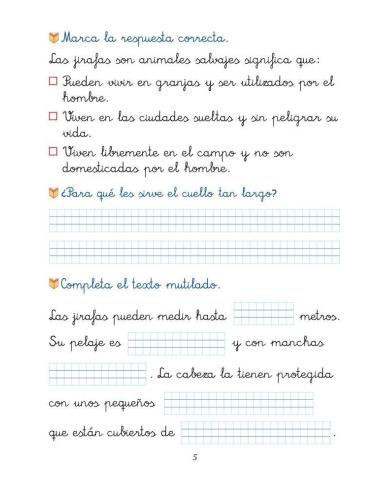 Marca la respuesta correcta.
Las jirafas son animales salvajes significa que:
Pueden vivir en granjas y ser utilizados por el
hombre.
Viven en las ciudades sueltas y sin peligrar su
vida.
Viven libremente en el campo y no son
domesticadas por el hombre.
¿Para qué les sirve el cuello tan largo?
Completa el texto mutilado.
Las jirafas pueden medir hasta metros.
Su pelaje es y con manchas
. La cabeza la tienen protegida
con unos pequeños
que están cubiertos de .
5